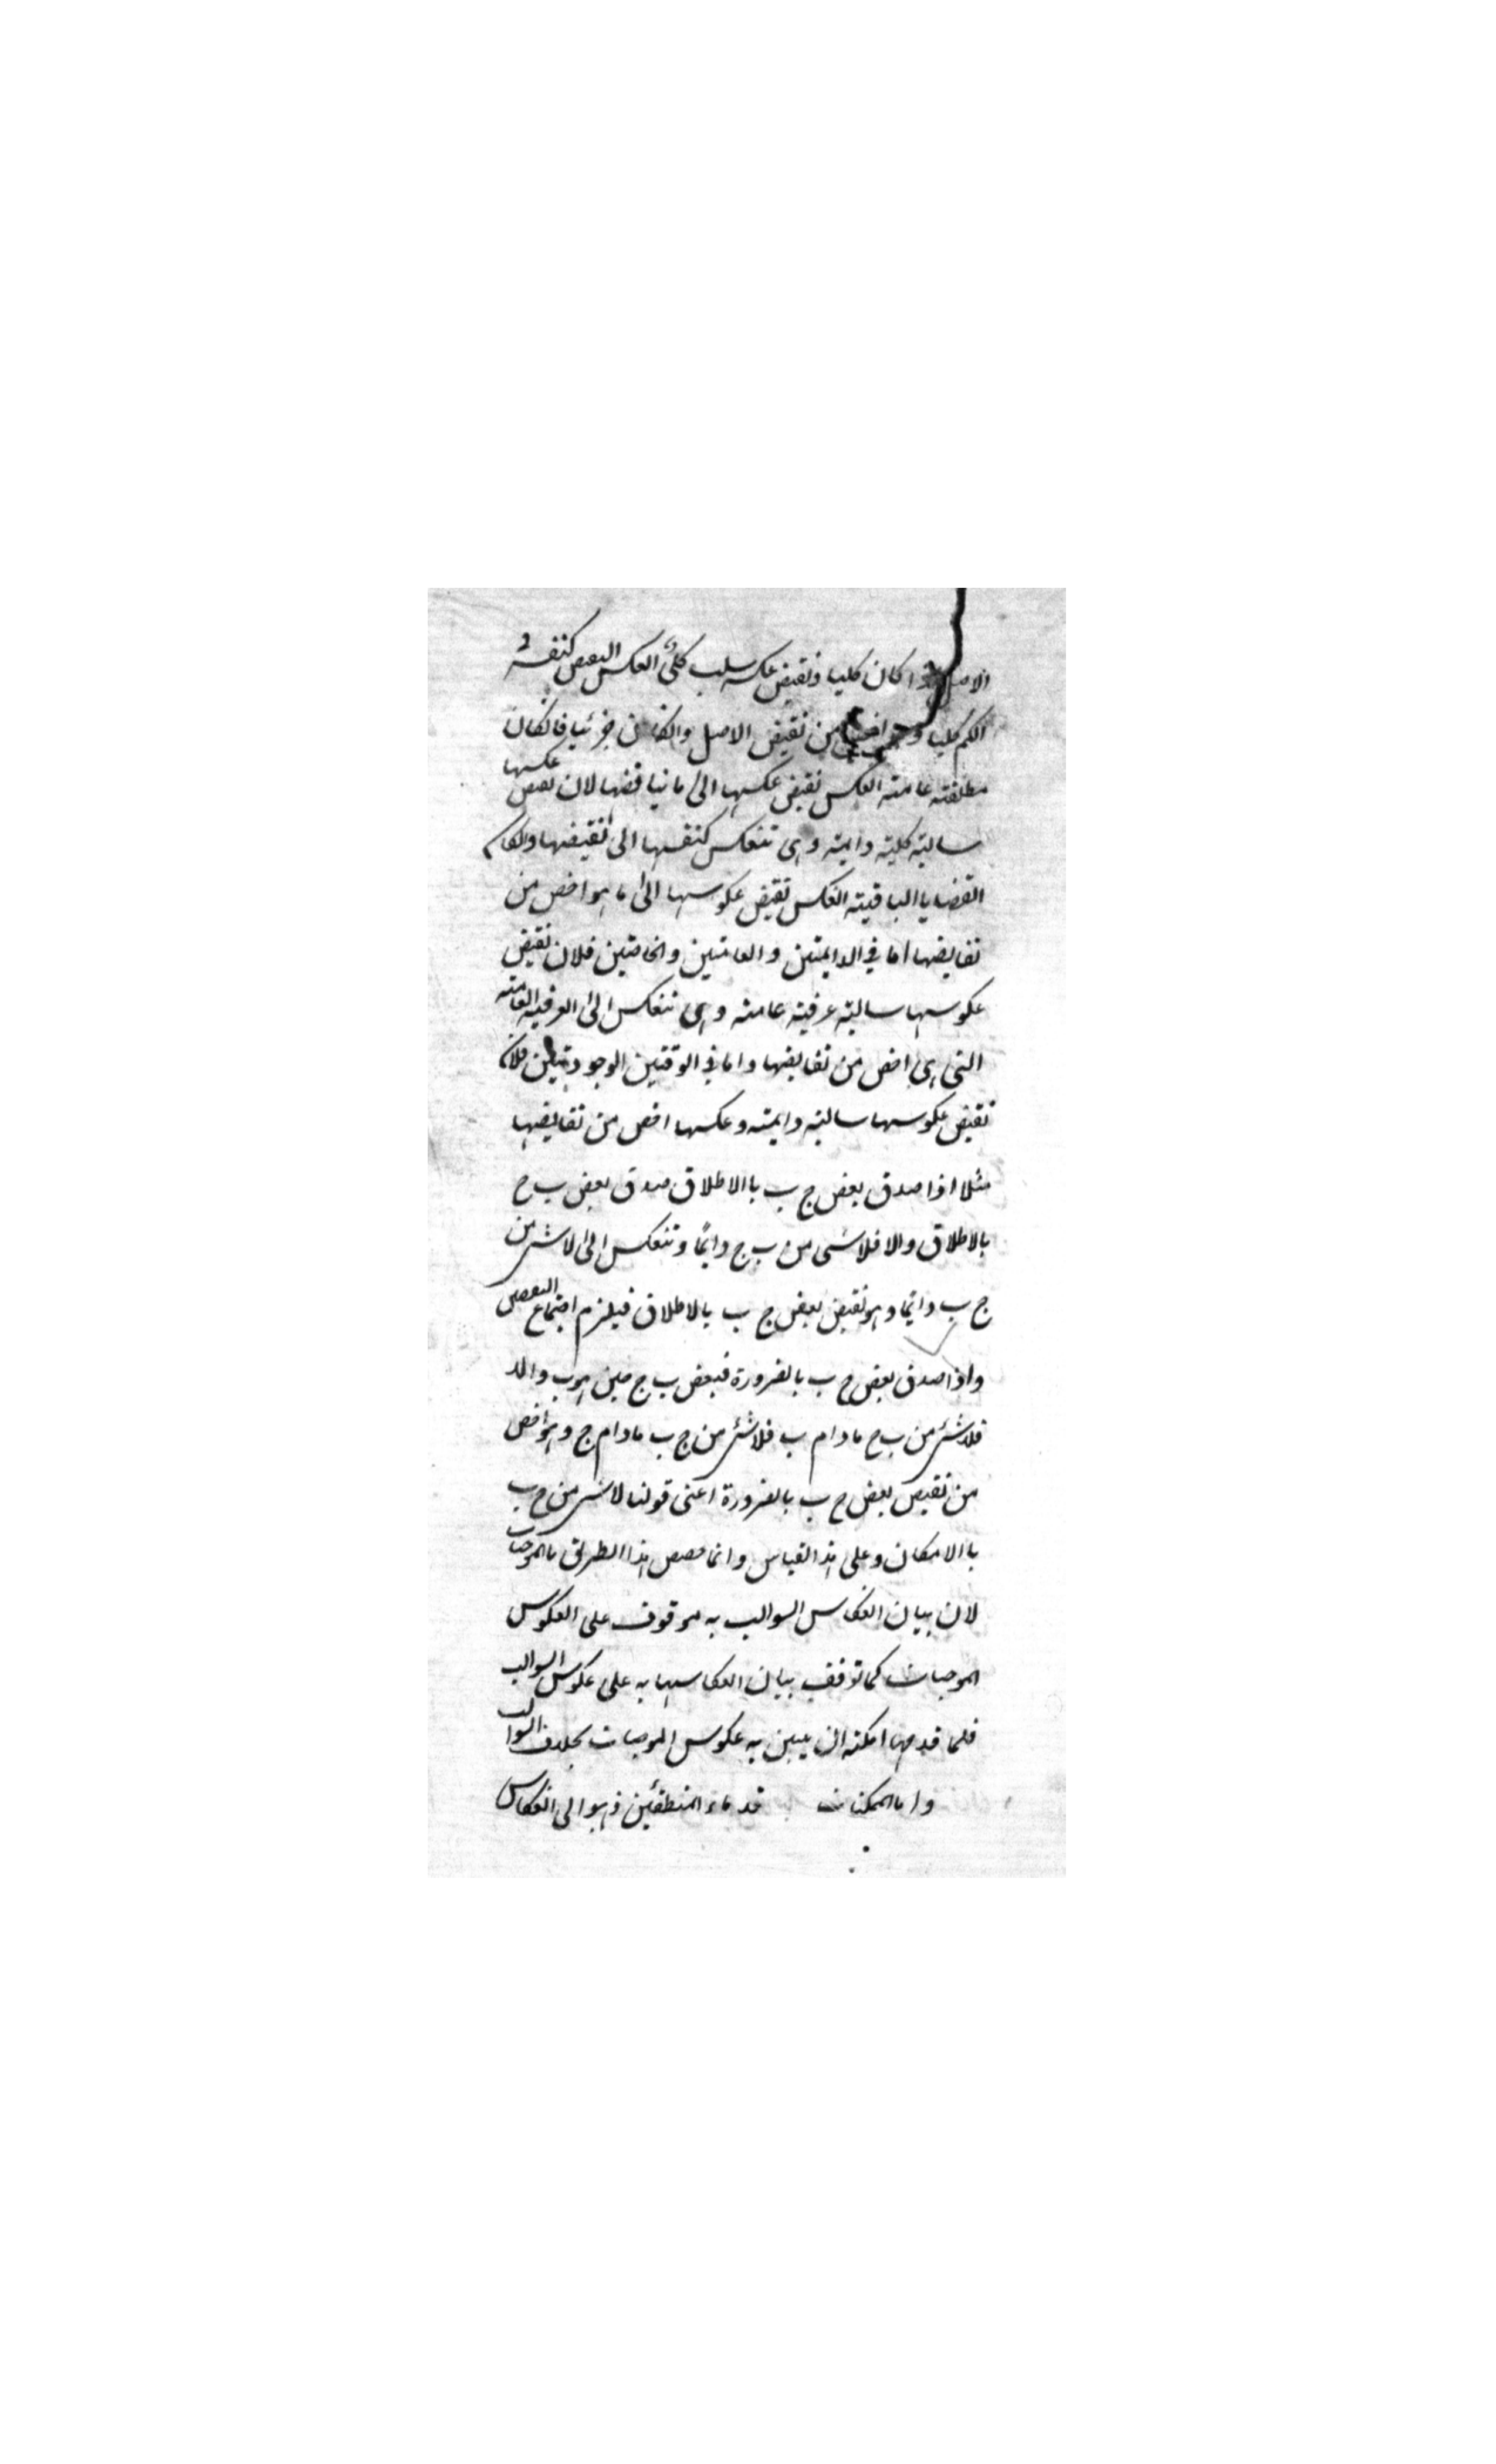 الاصل اذا كان كليا ونقيض عكسه سلب كلى انعكس النقيض كنفسه فى
الكم كليا وهو اخص من نقيض الاصل وانكان جزئيا فانكان
مطلقته عامته انعكس نقيض عكسها الى ما يناقضها لان نقيض عكسها
سالبته كليته دايمته وهى تنعكس كنفسها الى نقيضها وانكان
القضايا الباقيته انعكس نقيض عكوسها الى ما هو اخص من
نقايضها اما فى الدايمتين والعامتين والخاصتين فلان نقيض
عكوسها سالبته عرفيته عامته وهى تنعكس الى العرفيه العامته
التى هى اخص من نقايضها واما فى الوقتين الوجوديتين فلان
نقيض عكوسها سالبته دايمته وعكسها اخص من نقايضها
مثلا اذا صدق بعض ج ب باالاطلاق صدق بعض ب ج
بالاطلاق والا فلاشى من ب ج دايمًا وتنعكس الى لاشئ من
ج ب دايما وهو نقيض بعض ج ب بالاطلاق فيلزم اجتماع النقيضين
واذا صدق بعض ج ب بالضرورة فبعض ب ج حين هو ب والا
فلاشئ من ب ج مادام ب فلاشئ من ج ب مادام ج وهو اخص
من نقيض بعض ج ب بالضرورة اعنى قولنا لاشئ من ج ب
باالامكان وعلى هذا القياس وانما خصص هذا الطريق بالموجبات
لان بيان انعكاس السوالب به موقوف على العكوس
الموجبات كما توقف بيان انعكاسها به على عكوس السوالب
فلما قدمها امكنه ان يبين به عكوس الموجبات بخلاف السوالب
واما الممكنات قدماء المنطقئين ذهبوا الى انعكاس